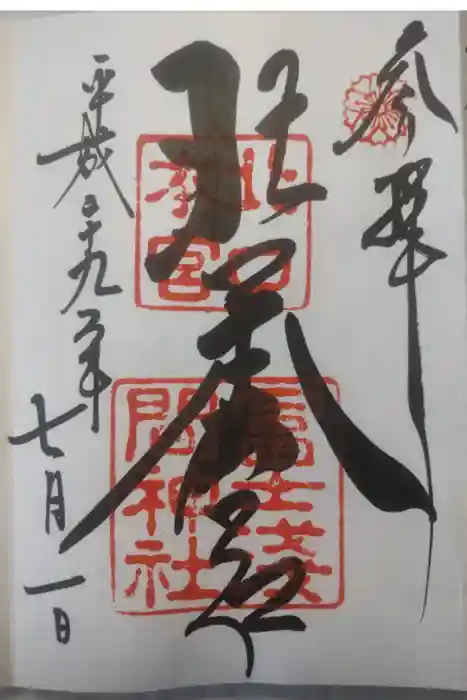 参拜
北口本宮
北口
本宮
冨士淺
間神社
平成二十九年
七月一日